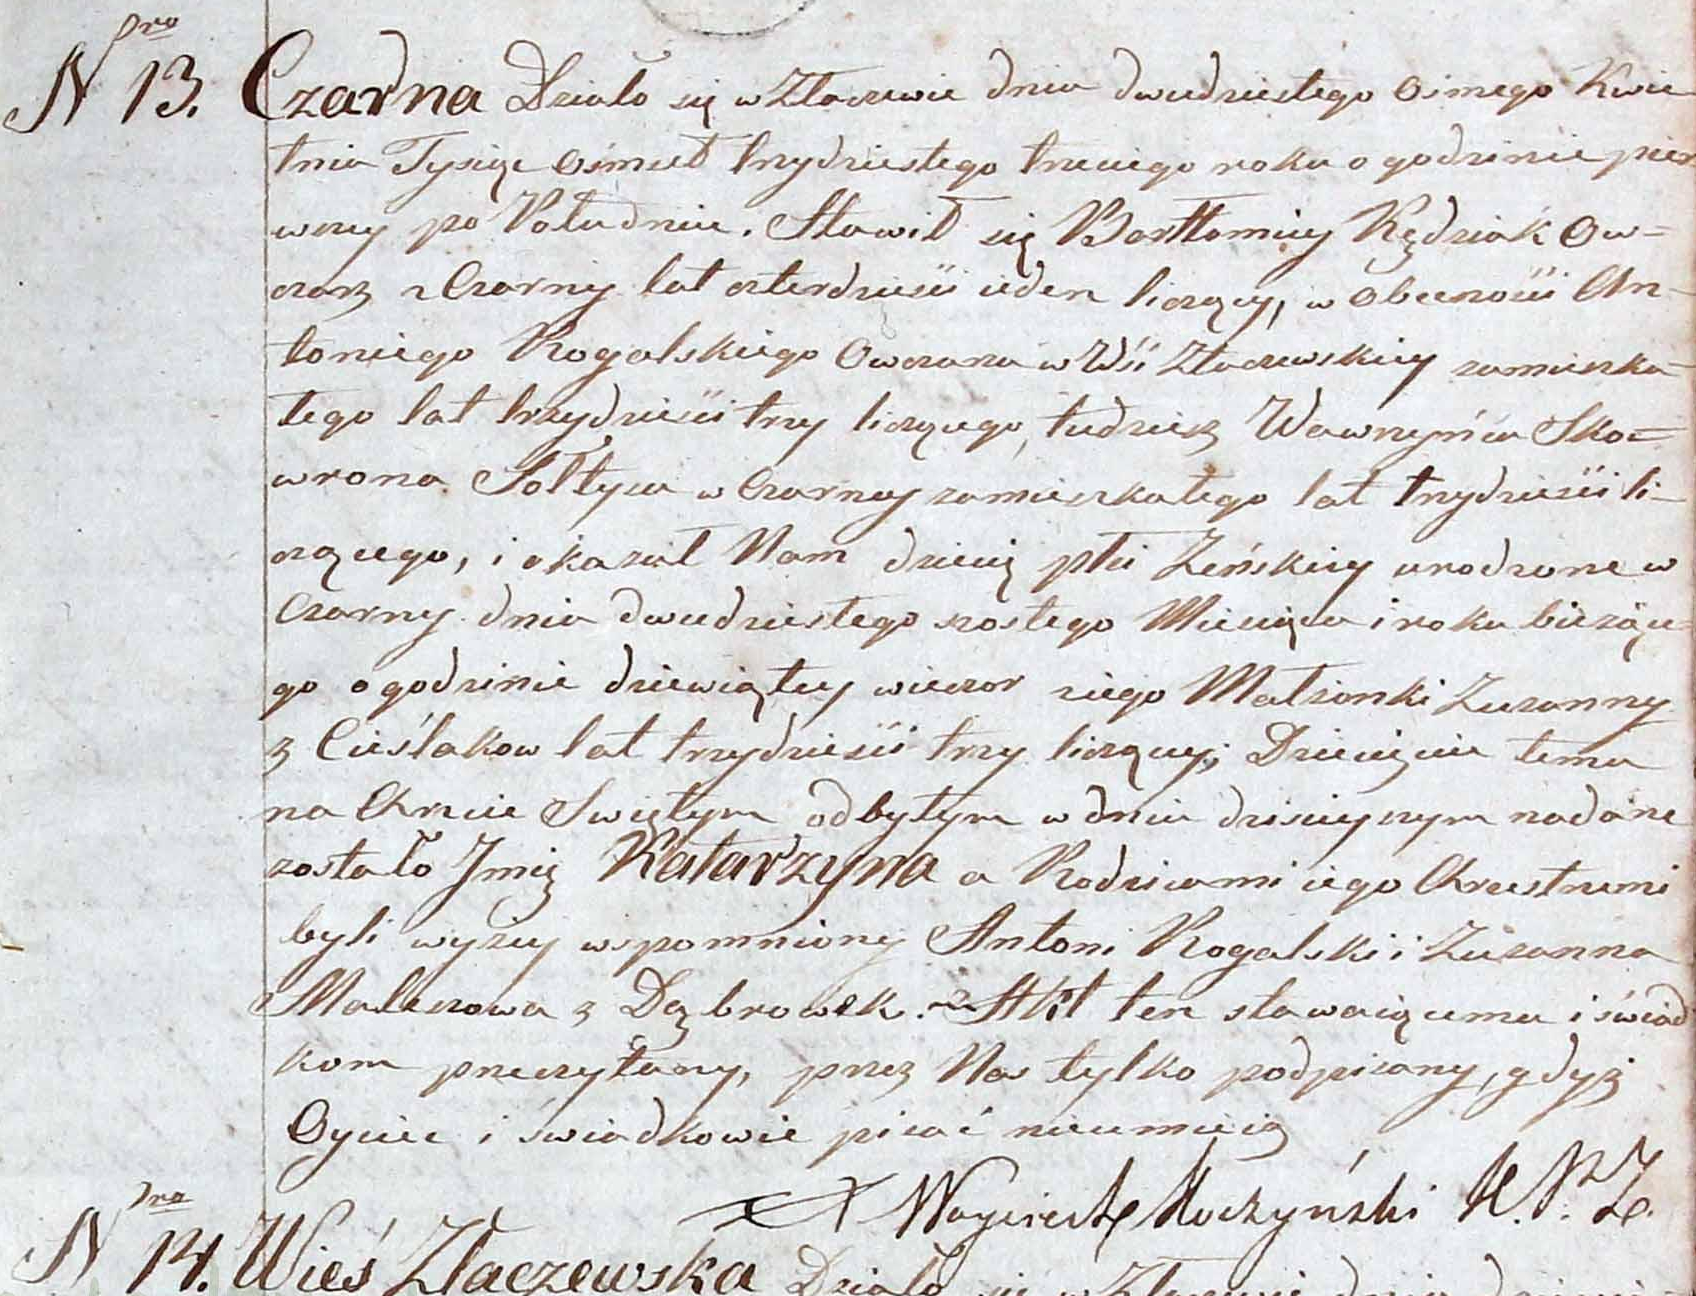 Nro 13. Czarna Działo się w Złoczewie dnia dwudziestego ósmego Kwie
tnia Tysiąc Ośmset trzydziestego trzeciego roku o godzinie pier
wszy po Południu. Stawił się Bartłomiey Kędziak Ow=
czarz z Czarny lat czterdzieści ieden liczący, w obecności An=
toniego Rogalskiego Owczarza w Wsi Złoczewskiey zamieszka=
łego lat trzydzieści trzy liczącego, tudzież Wawrzyńca Sko=
wrona Sołtysa w Czarny zamieszkałego lat trzydzieści li=
czącego, i okazał Nam dziecię płci Żeńskiey urodzone w
Czarny dnia dwudziestego szostego Miesiąca i roku bieżące=
go o godzinie dziewiątey wieczor z iego Małżonki Zuzanny
z Cieślakow lat trzydzieści trzy liczącey; Dziecięciu temu
na Chrzcie Swiętym odbytym w dniu dzisieyszym nadane
zostało Jmię Katarzyna a Rodzicami iego Chrzestnemi
byli wyżey wspomniony Antoni Rogalski i Zuzanna
z Dąbrowek. Akt ten stawaiącemu i świad
kom przeczytany, przez Nas tylko podpisany, gdyż
Oyciec i świadkowie pisać nieumieią
Woyciech Moczyński K. P. Z.
Nro 14. Wieś Złaczewska Działo się w Złoczewie dnia